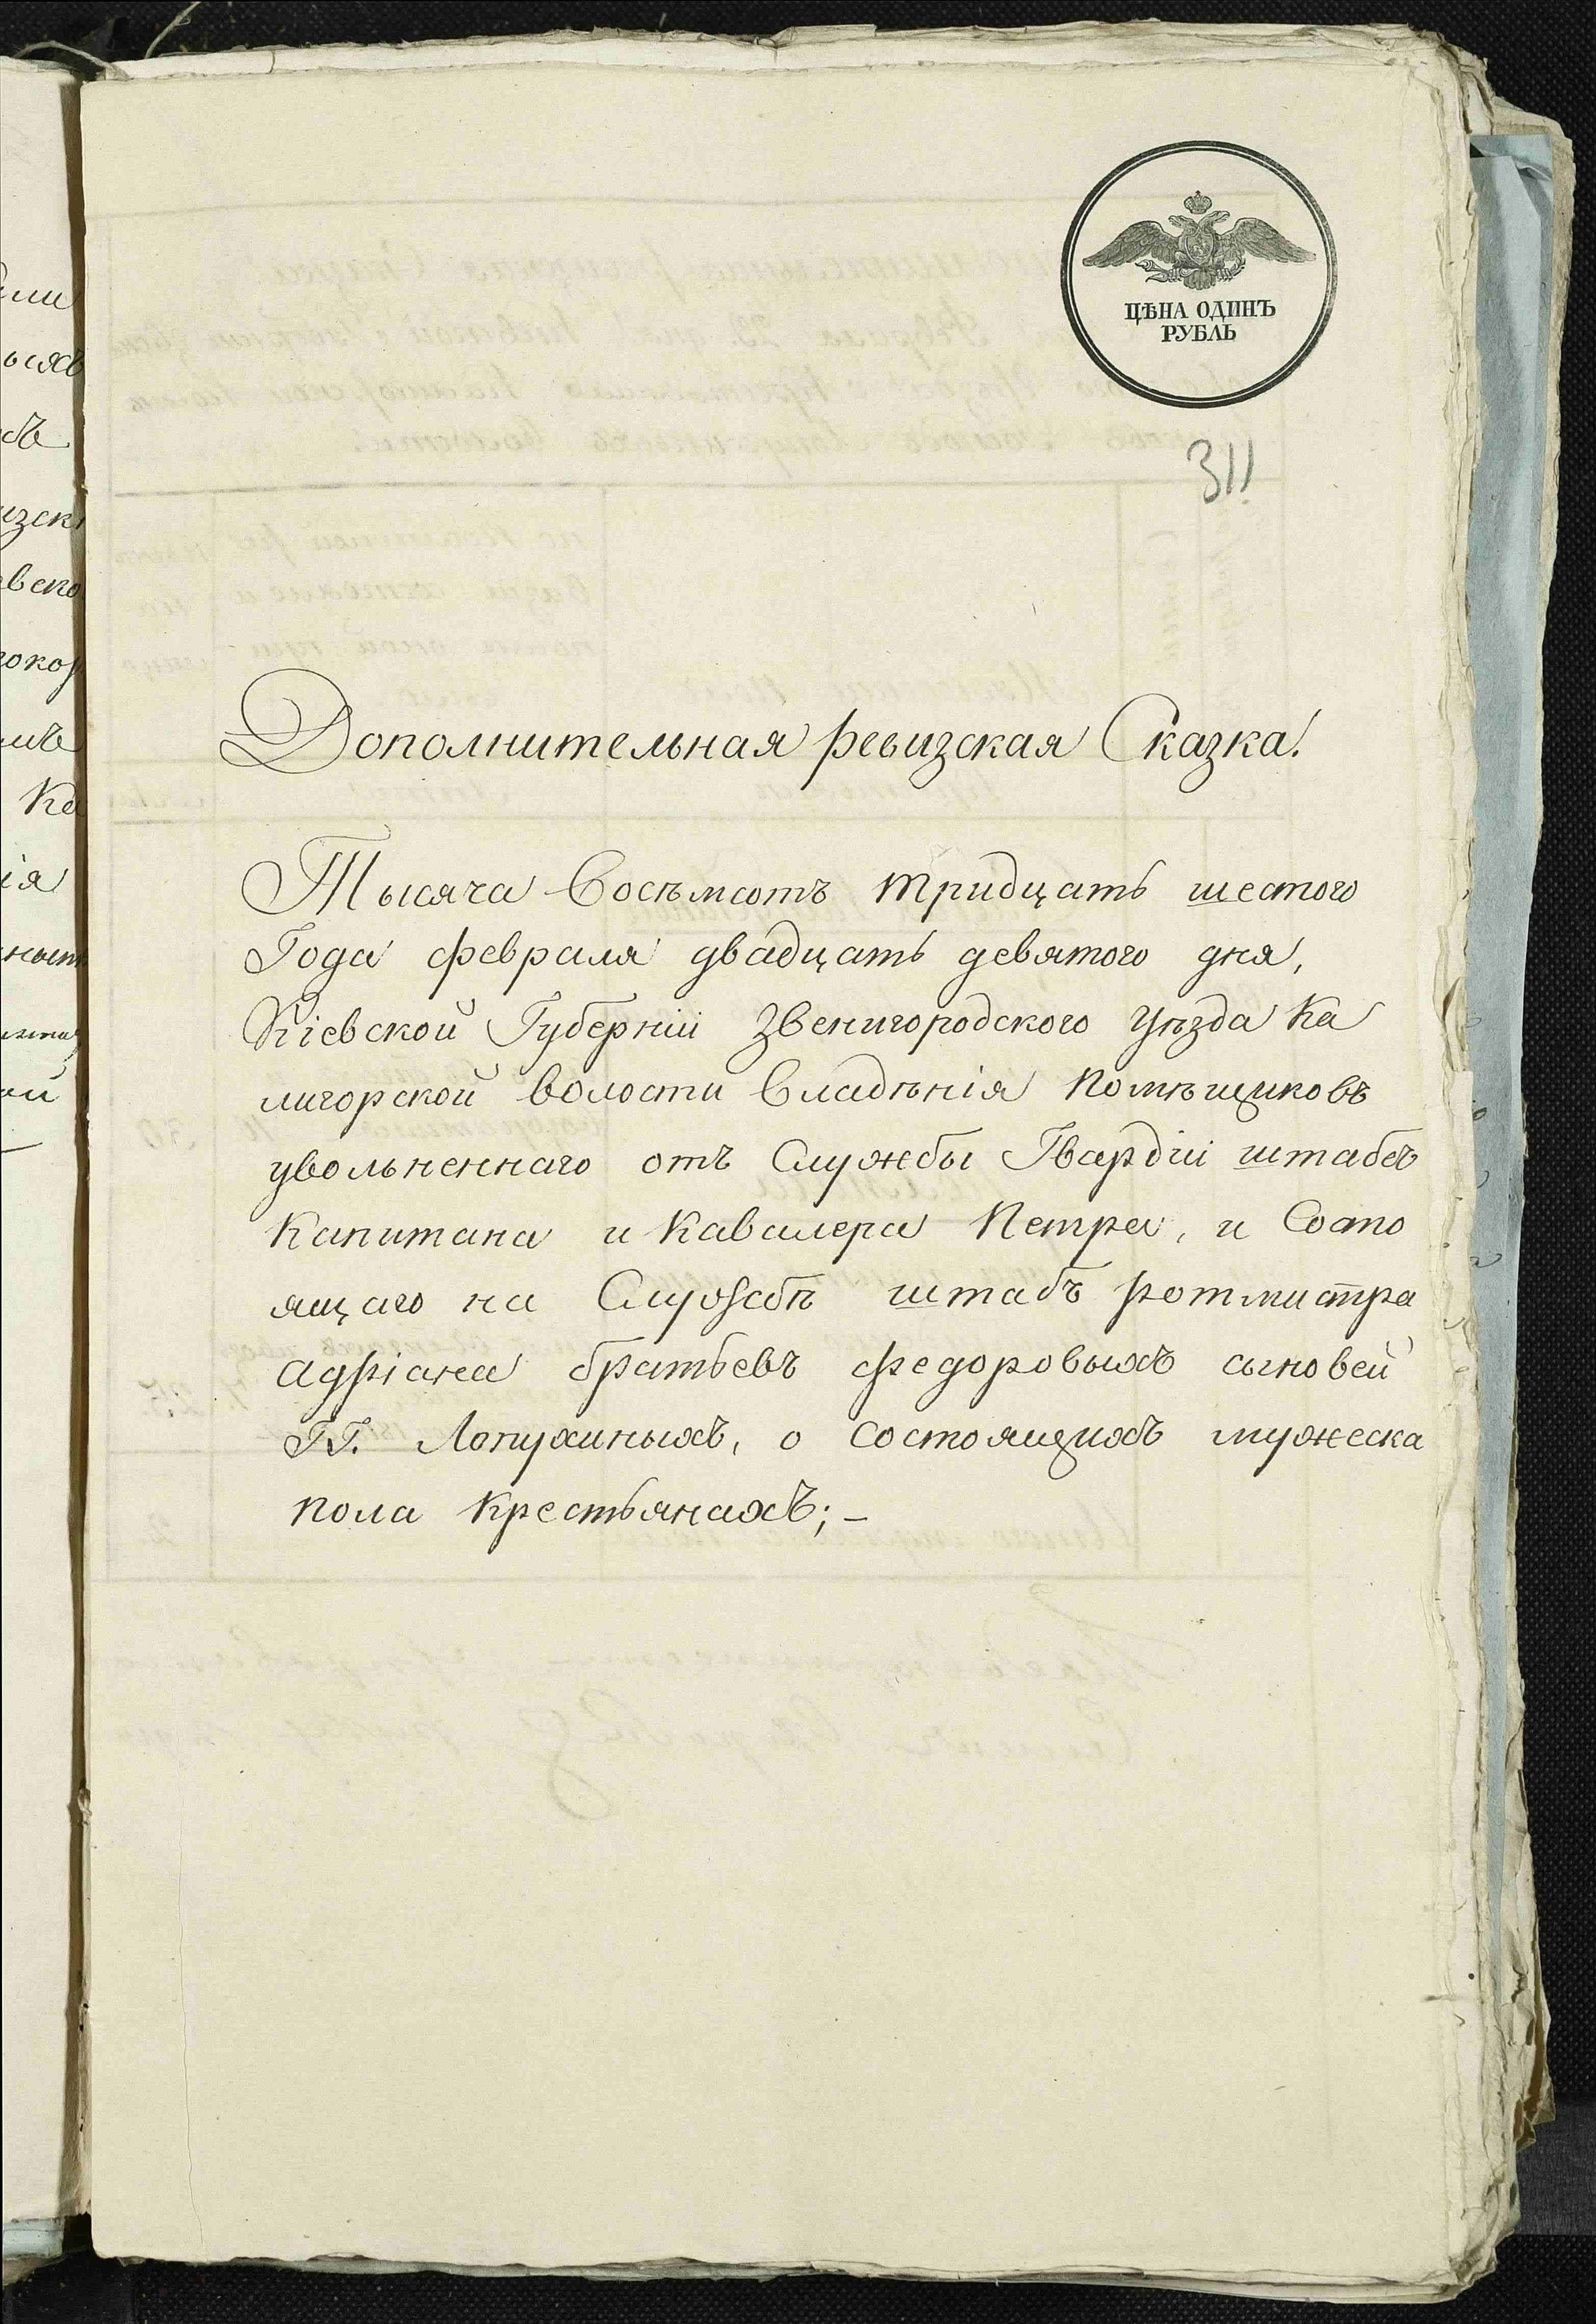 ЦѢНА ОДИНЪ
РУБЛЬ
311
Дополнительная ревизская Сказка.
Тысяча Восѣмсотъ тридцать шестого
Года февраля двадцать девятого дня,
Кіевской Губерніи Звенигородского Уѣзда Ка
лигорской волости Владѣнія Помѣщиковъ
увольненнаго отъ Службы Гвардіи штабсъ
Капитана и Кавалера Петра, и Состо
ящаго на Службѣ штабъ ротмистра
Адріана братьевъ федоровыхъ сыновей
ГГ. Лопухиныхъ, о состоящихъ мужеска
пола Крестьянахъ; –